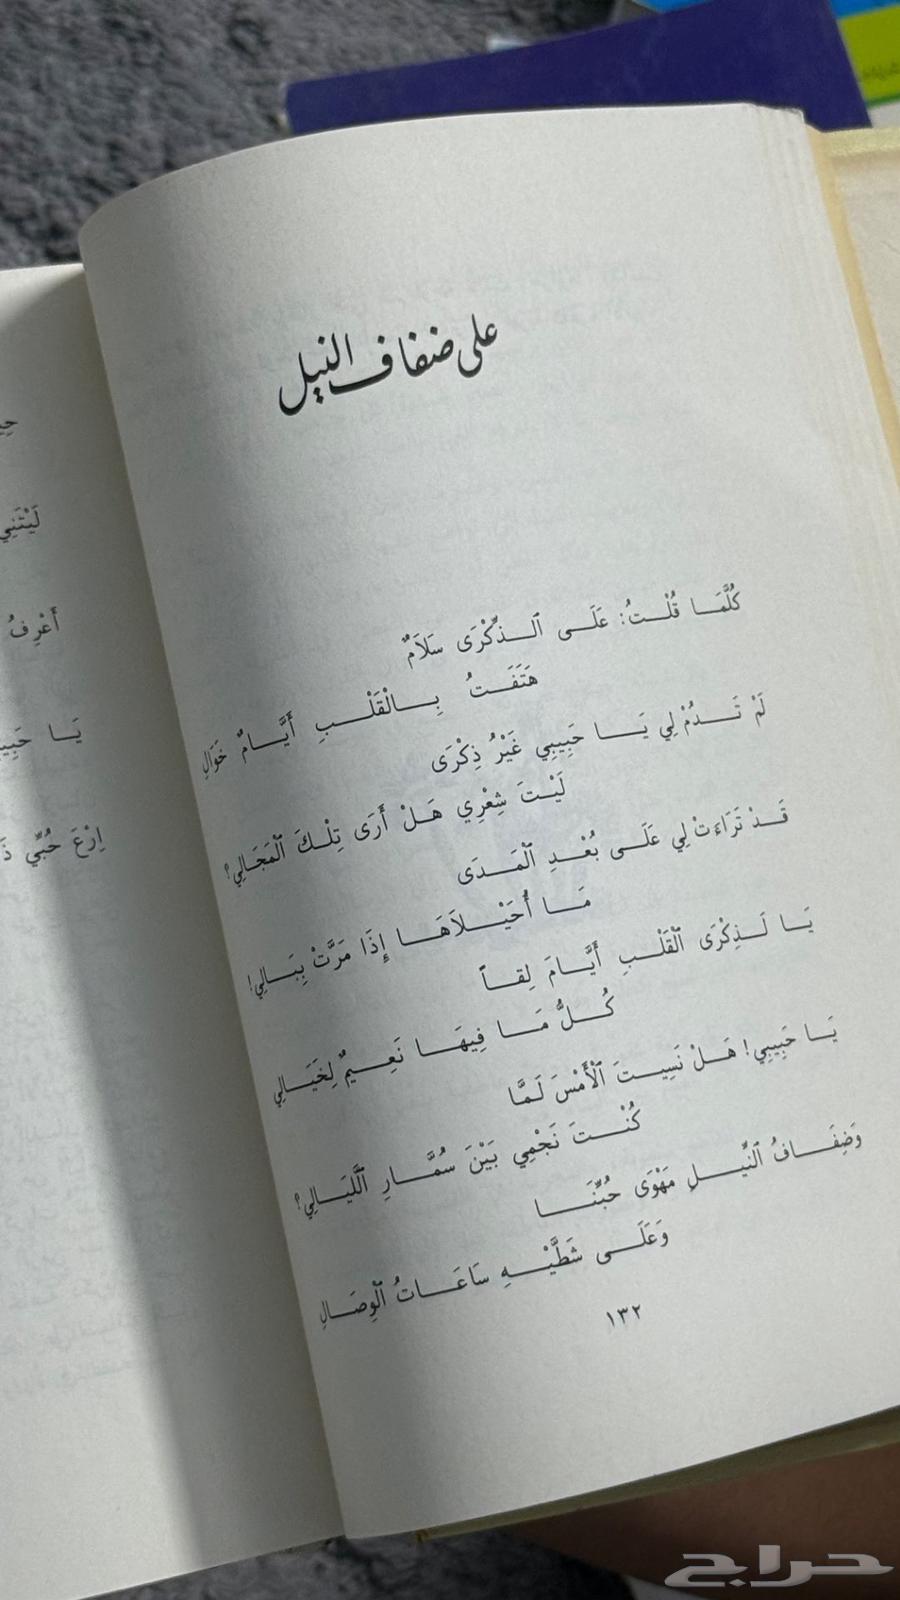 على ضفاف النيل
كُلَّمَا قُلْتُ: عَلَى ٱلذِّكْرَى سَلَامٌ
هَتَفَتْ بِالْقَلْبِ أَيَّامٌ خَوَالِ
لَمْ تَدُمْ لِي يَا حَبِيبِي غَيْرُ ذِكْرَى
لَيْتَ شِعْرِي هَلْ أَرَى تِلْكَ ٱلْمَجَالِي؟
قَدْ تَرَاءَتْ لِي عَلَى بُعْدِ ٱلْمَدَى
مَا أُحَيْلَاهَا إِذَا مَرَّتْ بِبَالِي!
يَا لَذِكْرَى ٱلْقَلْبِ أَيَّامَ لِقاً
كُلُّ مَا فِيهَا نَعِيمٌ لِخَيَالِي
يَا حَبِيبِي! هَلْ نَسِيتَ ٱلْأَمْسَ لَمَّا
كُنْتَ نَجْمِي بَيْنَ سُمَّارِ ٱللَّيَالِي؟
وَضِفَافُ ٱلنِّيلِ مَهْوَى حُبِّنَا
وَعَلَى شَطَّيْهِ سَاعَاتُ ٱلْوِصَالِ
١٣٢
لَيْتَنِي
أَعْرِفُ
يَا
اِرْعَ حُبِّي
حراج